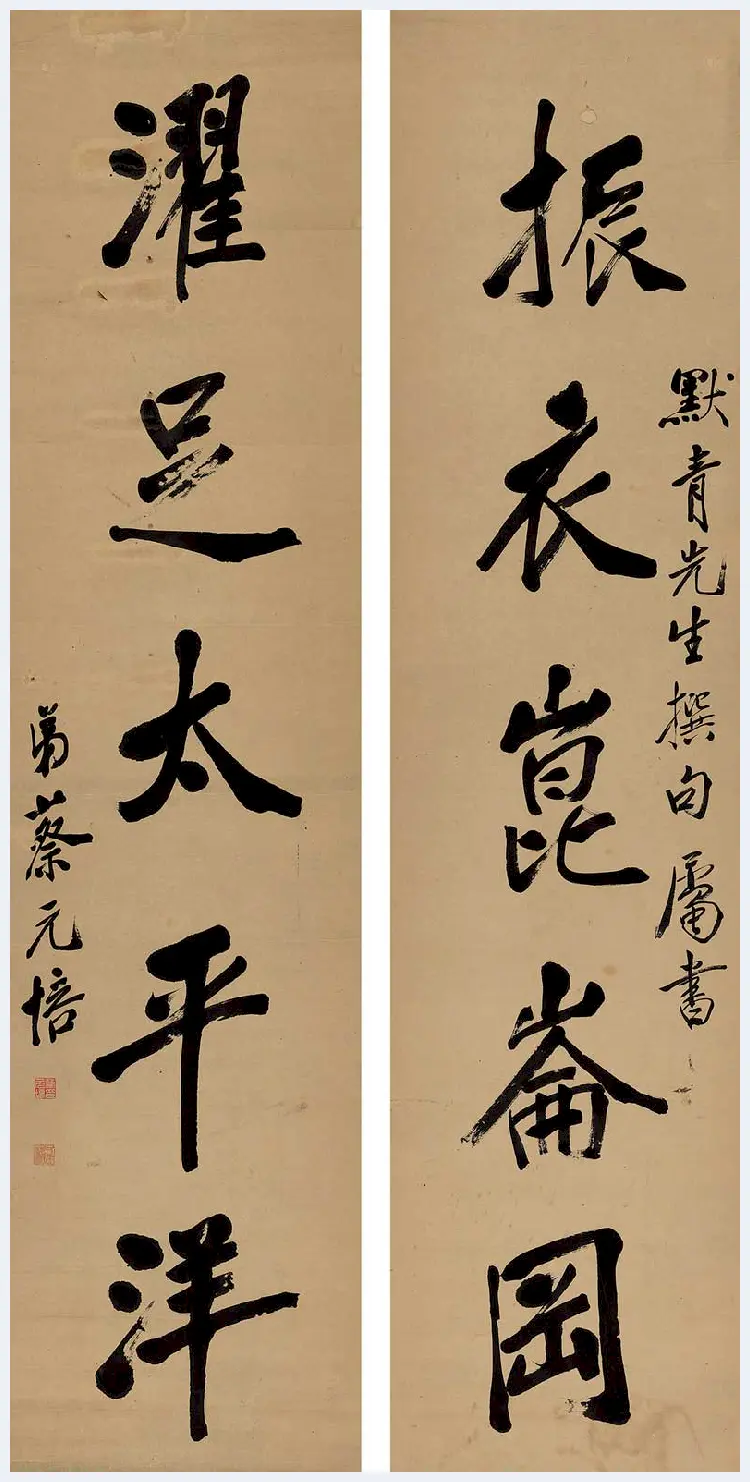 振衣崑崙岡
默青先生撰句屬書
濯足太平洋
弟蔡元培